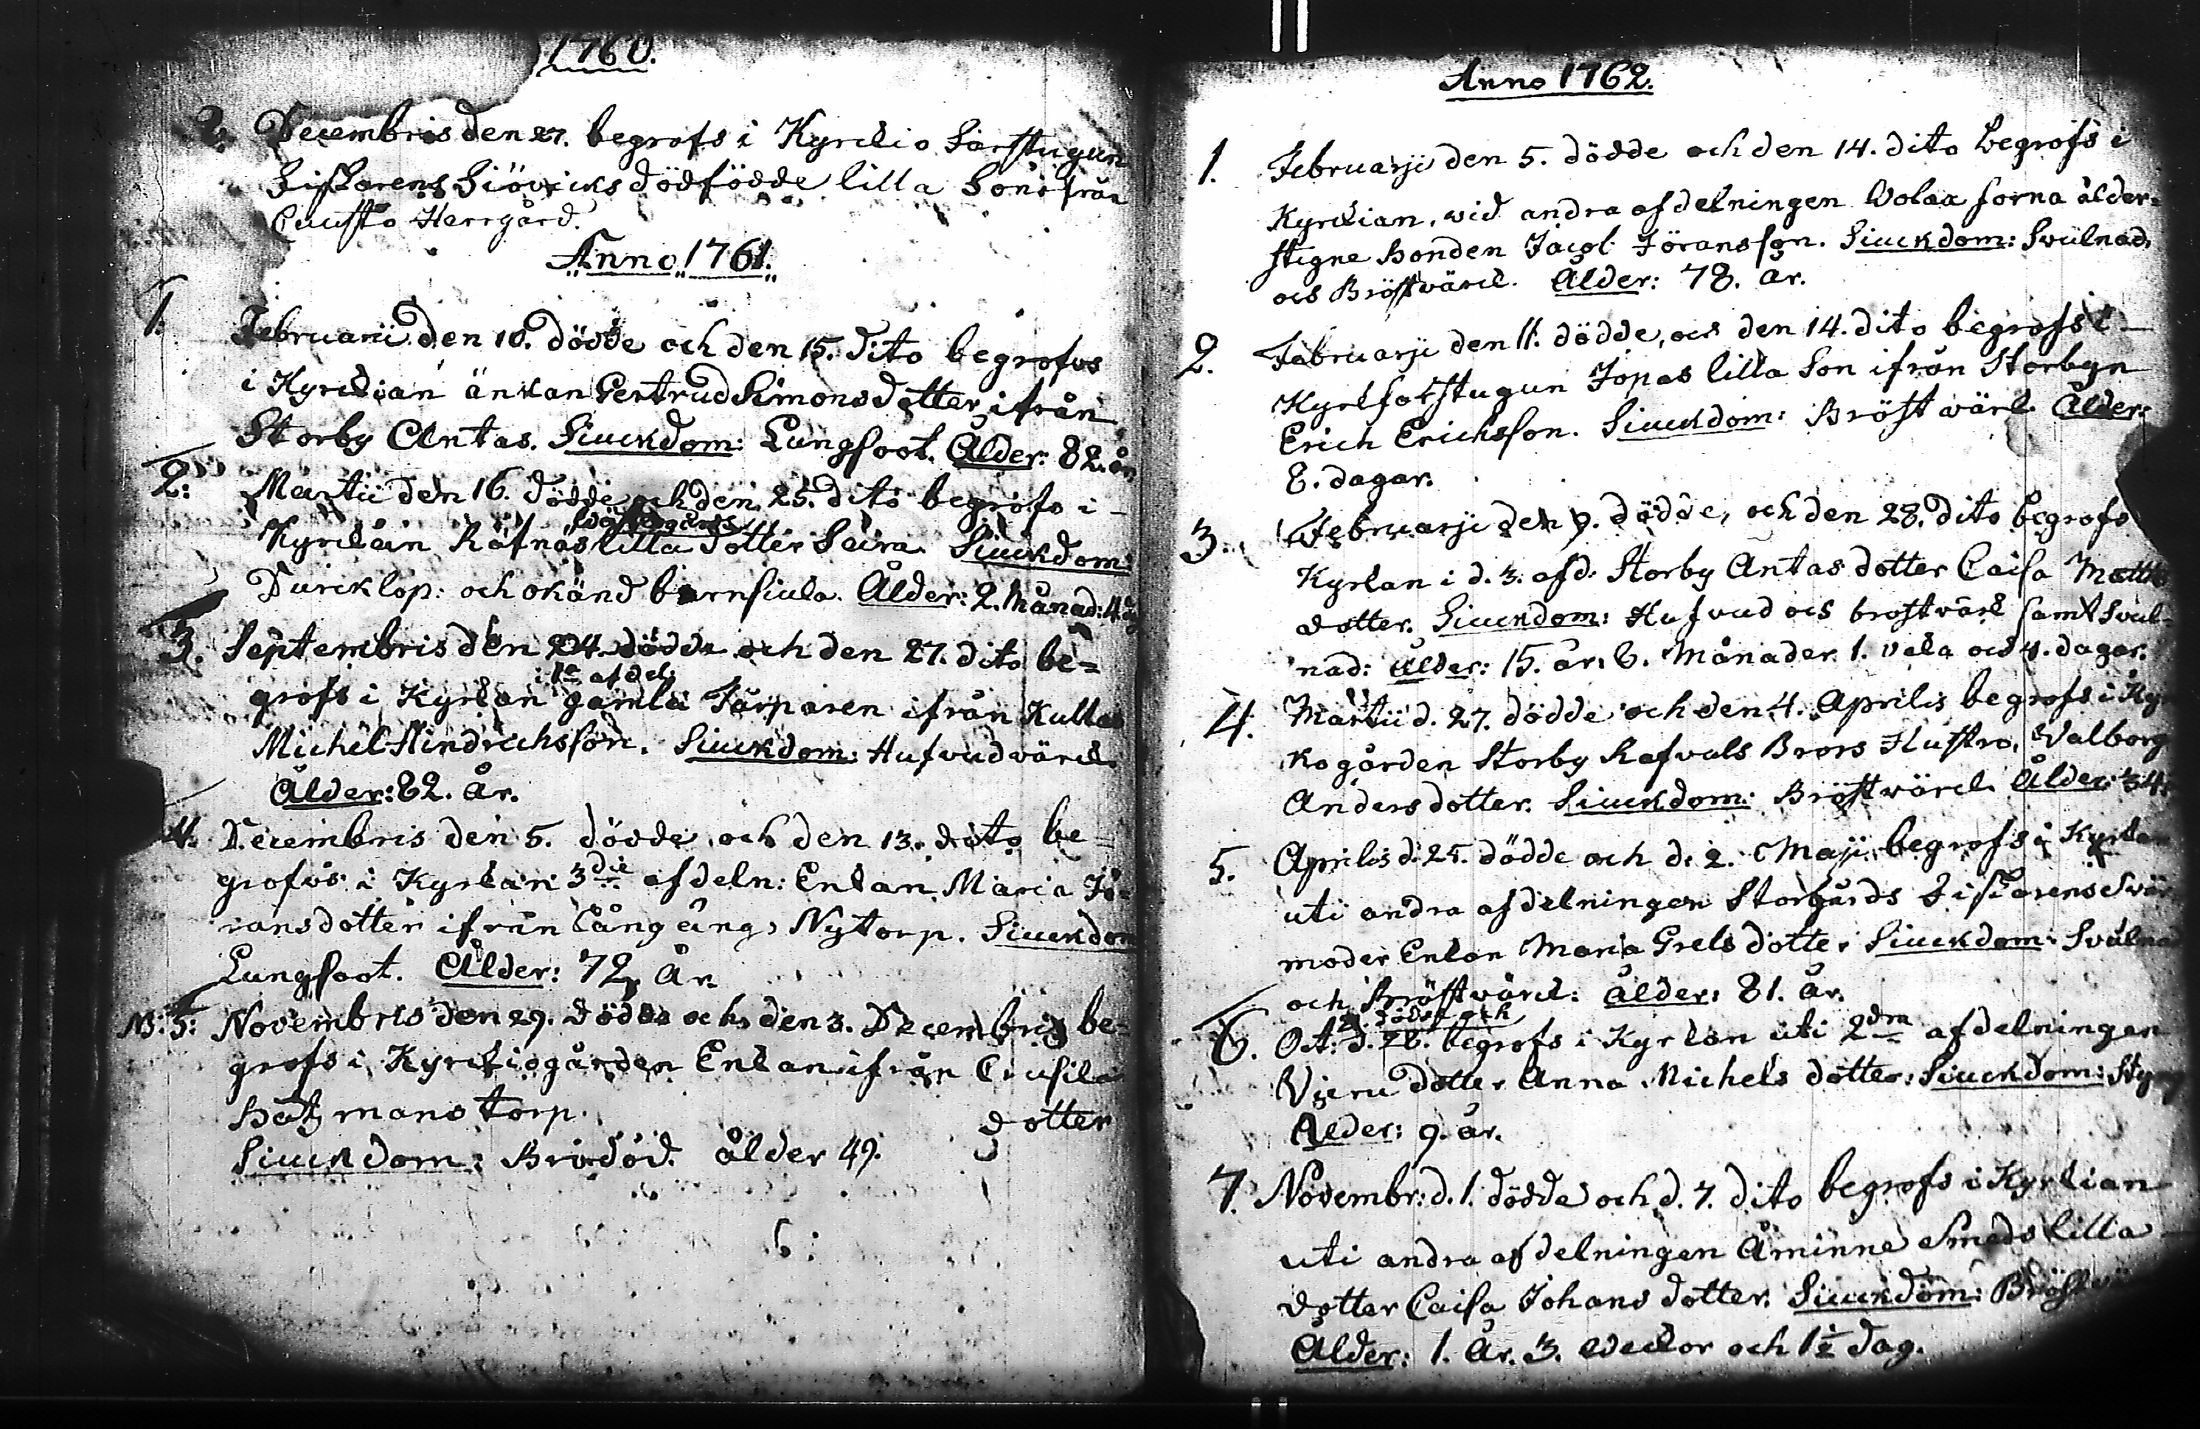 1760.
2. Decembris den 27. begrofs i Kyrckio
Fiskarens Siövicks dödfödde lilla Son ifrån
Cuusto Herrgård.
Anno 1761.
1. Februarii den 10. dödde och den 15. dito begrofvs
i Kyrckian änkan Gertrud Simonsdotter ifrån
Storby Antas. Siuckdom: Lungsoot. Ålder: 82. år
2: Martii den 16. dödde och den 25. dito begrofs i
Kyrckian Rafnäs lilla dotter Saira. Siuckdom:
Durcklop: och okänd barnsiuka. Ålder: 2. Månad: 4 dg
3. Septembris den 24. dödde och den 27. dito be=
i 1a afdel:
grofs i Kyrkan gamla Torparen ifrån Kulla
Michel Hindrichsson. Siuckdom: Hufvudvärck
Ålder: 82. År.
4. Decembris den 5. dödde och den 13. dito be=
grofvs i Kyrkan 3die afdeln: Enkan Maria Jö=
ransdotter ifrån Långängs Nytorp. Siuckdom
Lungsoot. Ålder: 72 År.
NB. 5: Novembris den 29. dödde och den 3. Decembris be=
grofs i Kyrckiogården Enkan ifrån Cusila
Båtzmans torp. dotter
Siuckdom: Brådöd. ålder 49.
6:
Anno 1762.
1. Februarji den 5. dödde och den 14. dito begrofs i
Kyrckian, wid andra afdelningen Wolax forna ålder=
stigne Bonden Jacob Jöransson. Siuckdom: Svulnad,
och Bröstvärck. Ålder: 78. år.
2. Februarji den 11. dödde, och den 14. dito begrofs i
Kyrkfarstugun Jonas lilla Son ifrån Storbyn
Erich Erichsson. Siuckdom: Bröstwärk. Ålder:
8. dagar.
3. Februarji den 9. dödde, och den 28. dito begrofs
Kyrkan i d. 3. afd: Storby Antas dotter Caisa Matts
dotter. Siuckdom: Hufvud och bröstvärk samt Svul-
nad: ålder: 15. år. 6. Månader 1. veka och 4. dagar.
4. Martii d. 27. dödde och den 4. Aprilis begrofs i Kyr
kogården Storby Rafvals Brors Hustro, Valborg
Andersdotter. Siuckdom: Bröstvärck. Ålder: 34.
5. Aprilis d. 25. dödde och d. 2. Maji begrofs i Kyrkan
uti andra afdelningen Storgårds Fiskarens Svär
moder Enkan Maria Grels dotter Siuckdom: Svulnad
och Bröstvärck: ålder: 81. år.
dödde och
6. Oct: d. 26. begrofs i Kyrkan uti 2dra afdelningen
Vieru dotter Anna Michels dotter: Siuckdom:
Ålder: 9. år.
7. Novembr: d. 1. dödde och d. 7. dito begrofs i Kyrkian
uti andra afdelningen Åminne Smeds lilla
dotter Caisa Johans dotter. Siuckdom: Bröstvä
Ålder: 1. År. 3. weckor och 1½ dag.